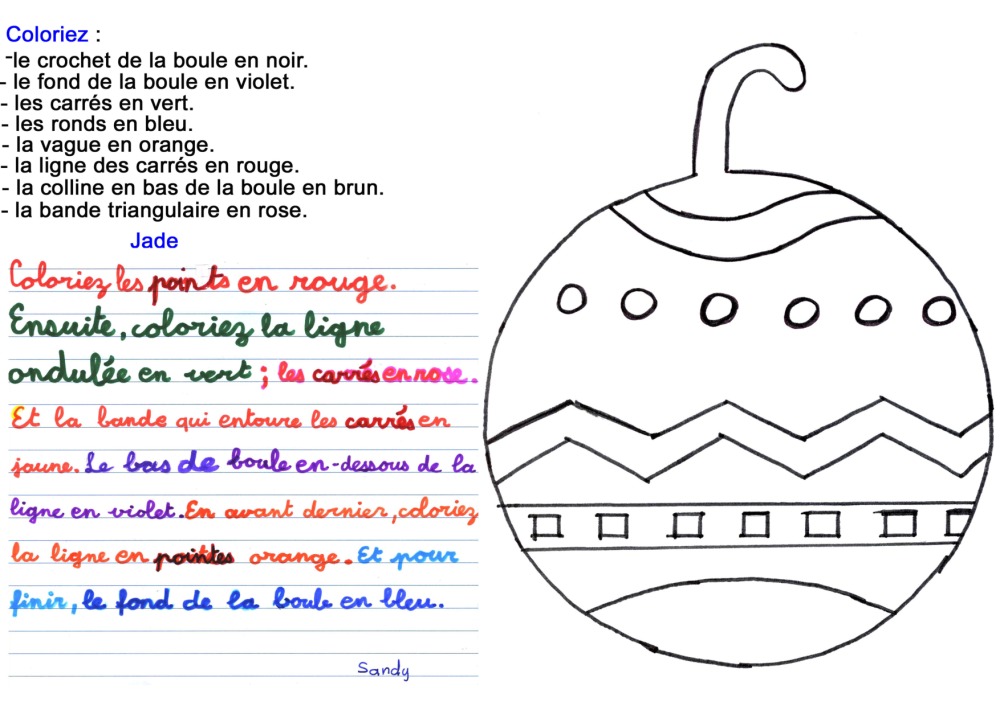 Coloriez :
-le crochet de la boule en noir.
- le fond de la boule en violet.
- les carrés en vert.
- les ronds en bleu.
- la vague en orange.
- la ligne des carrés en rouge.
- la colline en bas de la boule en brun.
- la bande triangulaire en rose.
Jade
Coloriez les points en rouge.
Ensuite, coloriez la ligne
ondulée en vert ; les carrés en rose.
Et la bande qui entoure les carrés en
jaune. Le bas de boule en-dessous de la
ligne en violet. En avant dernier, coloriez
la ligne en pointes orange. Et pour
finir, le fond de la boule en bleu.
Sandy